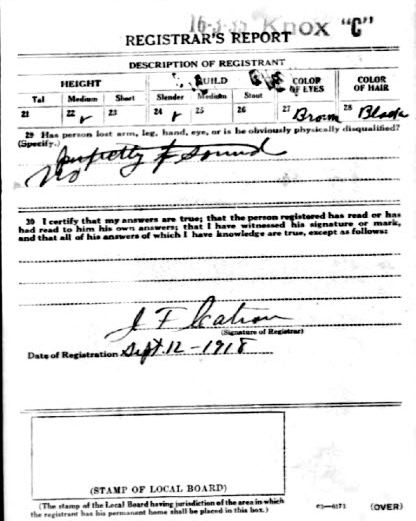 16-3-33 Knox "C"
REGISTRAR'S REPORT
DESCRIPTION OF REGISTRANT
HEIGHT BUILD COLOR OF EYES COLOR OF HAIR
Tal Medium Short Slender Medium Stout
21 22 ✓ 23 24 ✓ 25 26 27 Brown 28 Black
29 Has person lost arm, leg, hand, eye, or is he obviously physically disqualified?
(Specify.)
No
30 I certify that my answers are true; that the person registered has read or has
had read to him his own answers; that I have witnessed his signature or mark,
and that all of his answers of which I have knowledge are true, except as follows:
J F Catron
(Signature of Registrar)
Date of Registration Sept. 12 - 1918
(STAMP OF LOCAL BOARD)
(The stamp of the Local Board having jurisdiction of the area in which
the registrant has his permanent home shall be placed in this box.)
(OVER)